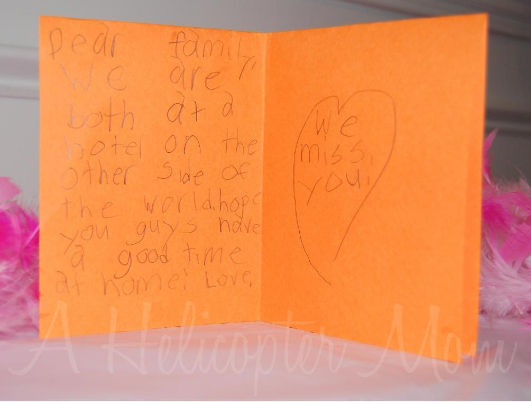 Dear family
We are
both at a
hotel on the
other side of
the world.hope
you guys have
a good time
at home! Love,
We
miss.
you.
A Helicopter Mom